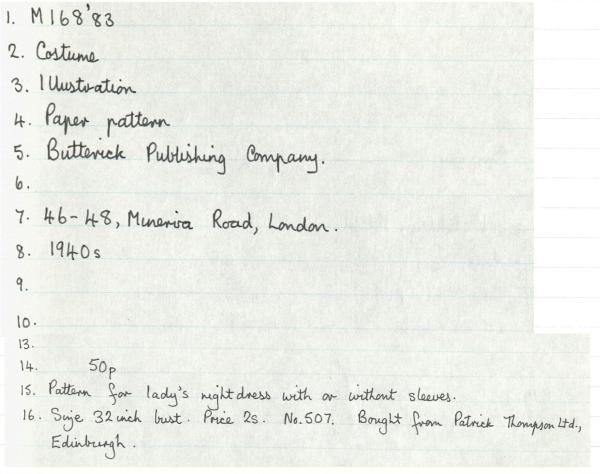 1. M168'83
2. Costume
3. Illustration
4. Paper pattern
5. Butterick Publishing Company.
6.
7. 46-48, Minerva Road, London.
8. 1940s
9.
10.
13.
14. 50p
15. Pattern for lady's nightdress with or without sleeves.
16. Size 32 inch bust. Price 2s. No. 507. Bought from Patrick Thompson Ltd.,
Edinburgh.